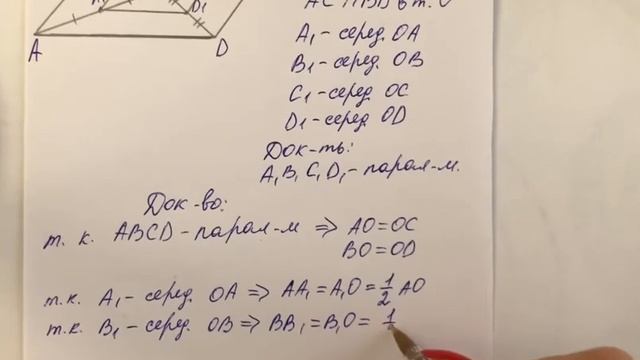 AC ∩ BD в т. O
A₁ D₁
A D
A₁ - серед. OA
B₁ - серед. OB
C₁ - серед. OC
D₁ - серед. OD
Док-ть:
A₁B₁C₁D₁ - парал-м.
Док-во:
т. к. ABCD - парал-м ⇒ AO = OC
BO = OD
т.к. A₁ - серед. OA ⇒ AA₁ = A₁O = 1/2 AO
т.к. B₁ - серед. OB ⇒ BB₁ = B₁O = 1